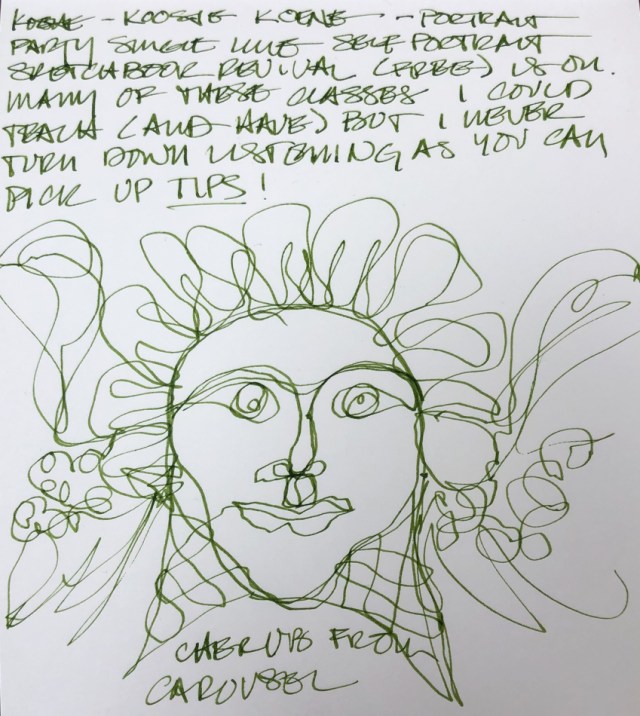 KOENE - KOOSJE KOENE - - PORTRAIT
PARTY SINGLE LINE SELF PORTRAIT
SKETCHBOOK REVIVAL (FREE) IS ON.
MANY OF THESE CLASSES I COULD
TEACH (AND HAVE) BUT I NEVER
TURN DOWN LISTENING AS YOU CAN
PICK UP TIPS!
CHERUBS FROM
CAROUSEL